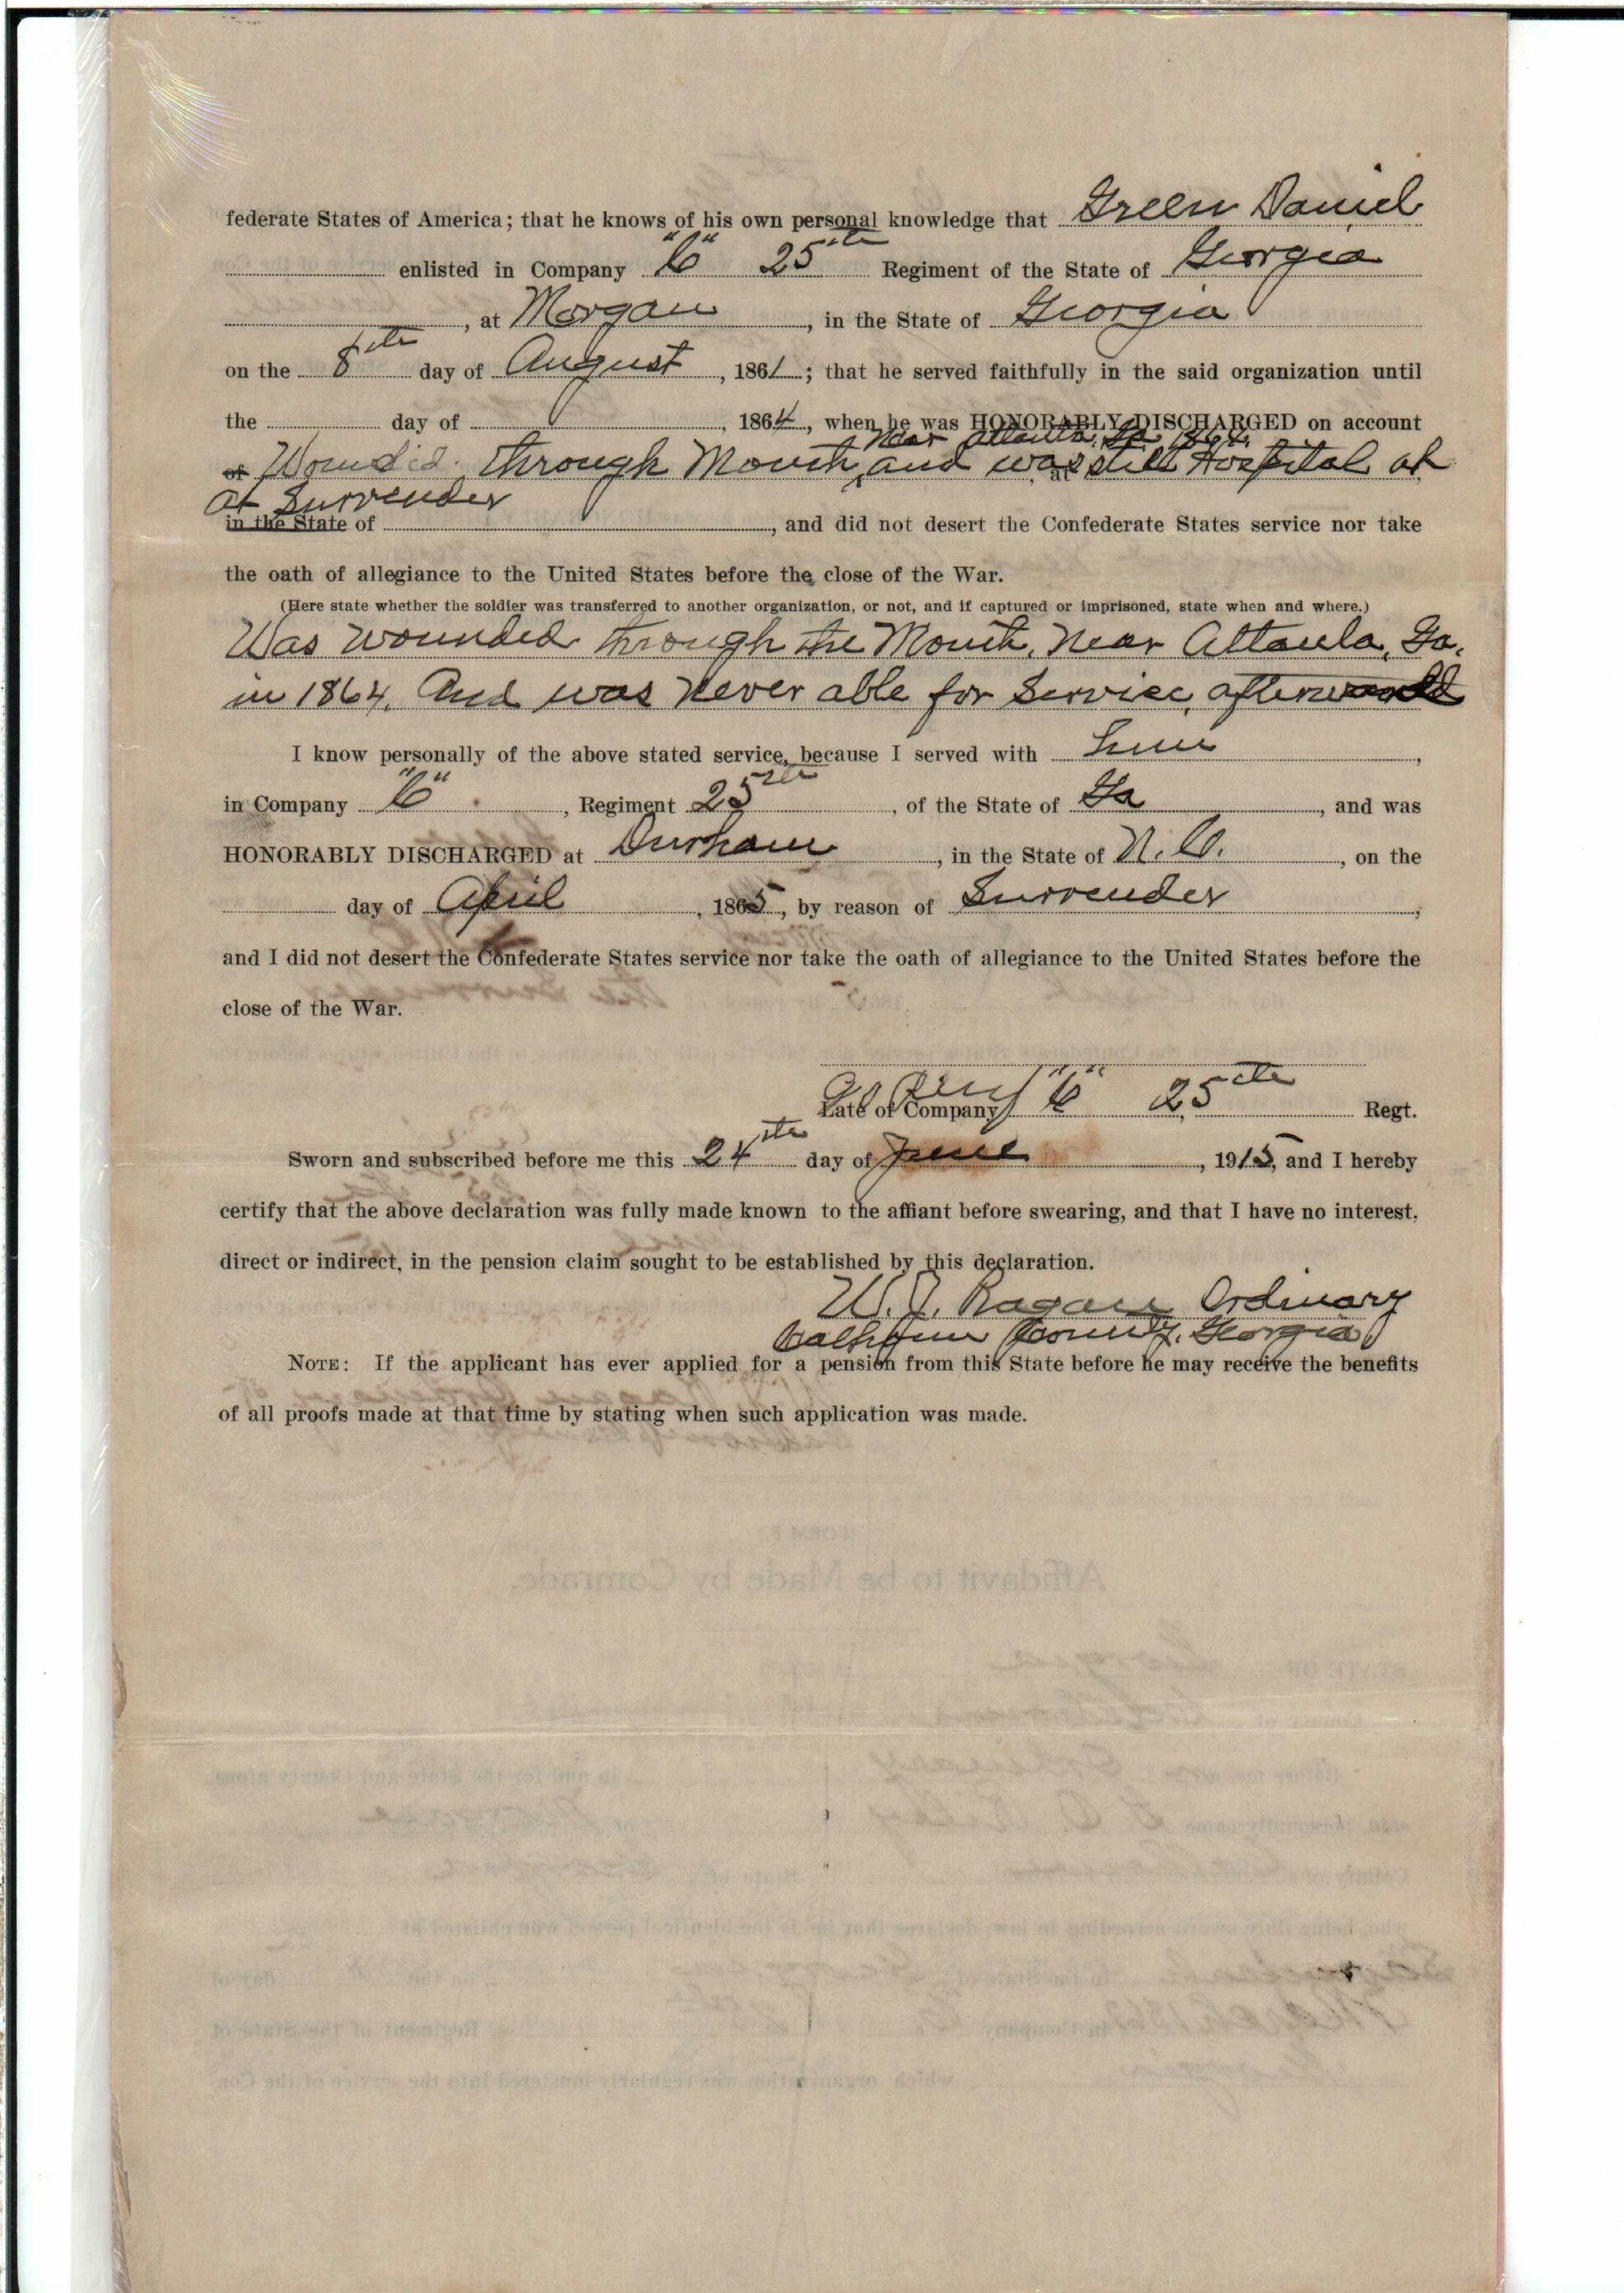 federate States of America; that he knows of his own personal knowledge that Green Daniel
enlisted in Company "C" 25th Regiment of the State of Georgia
, at Morgan, in the State of Georgia
on the 8th day of August, 1861; that he served faithfully in the said organization until
the day of , 1864, when he was HONORABLY DISCHARGED on account
near Atlanta, Ga. 1864.
of Wounded through Mouth, and was still Hospital at
at Surrender
in the State of , and did not desert the Confederate States service nor take
the oath of allegiance to the United States before the close of the War.
(Here state whether the soldier was transferred to another organization, or not, and if captured or imprisoned, state when and where.)
Was wounded through the Mouth, near Atlanta, Ga,
in 1864. And was never able for Service, afterward
I know personally of the above stated service, because I served with him,
in Company "C", Regiment 25th, of the State of Ga, and was
HONORABLY DISCHARGED at Durham, in the State of N.C., on the
day of April, 1865, by reason of Surrender,
and I did not desert the Confederate States service nor take the oath of allegiance to the United States before the
close of the War.
Late of Company "C" 25th Regt.
Sworn and subscribed before me this 24th day of June, 1915, and I hereby
certify that the above declaration was fully made known to the affiant before swearing, and that I have no interest,
direct or indirect, in the pension claim sought to be established by this declaration.
W. J. Ragan Ordinary
Calhoun County, Georgia
NOTE: If the applicant has ever applied for a pension from this State before he may receive the benefits
of all proofs made at that time by stating when such application was made.